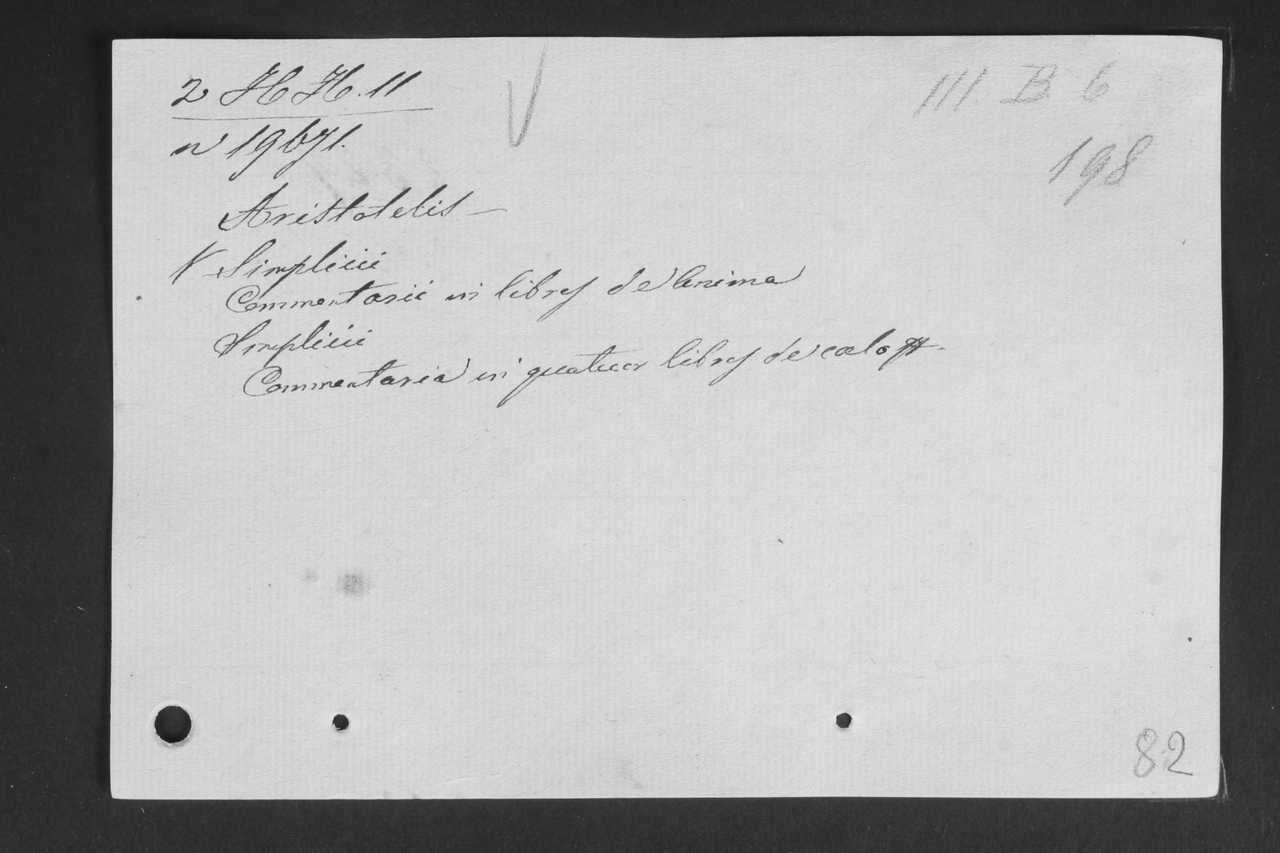 2 H H. 11
III B 6
n 19671.
198
Aristotelis —
V Simplicii
Commentarii in libros de Anima
Simplicii
Commentaria in quatuor libros de cœlo
82